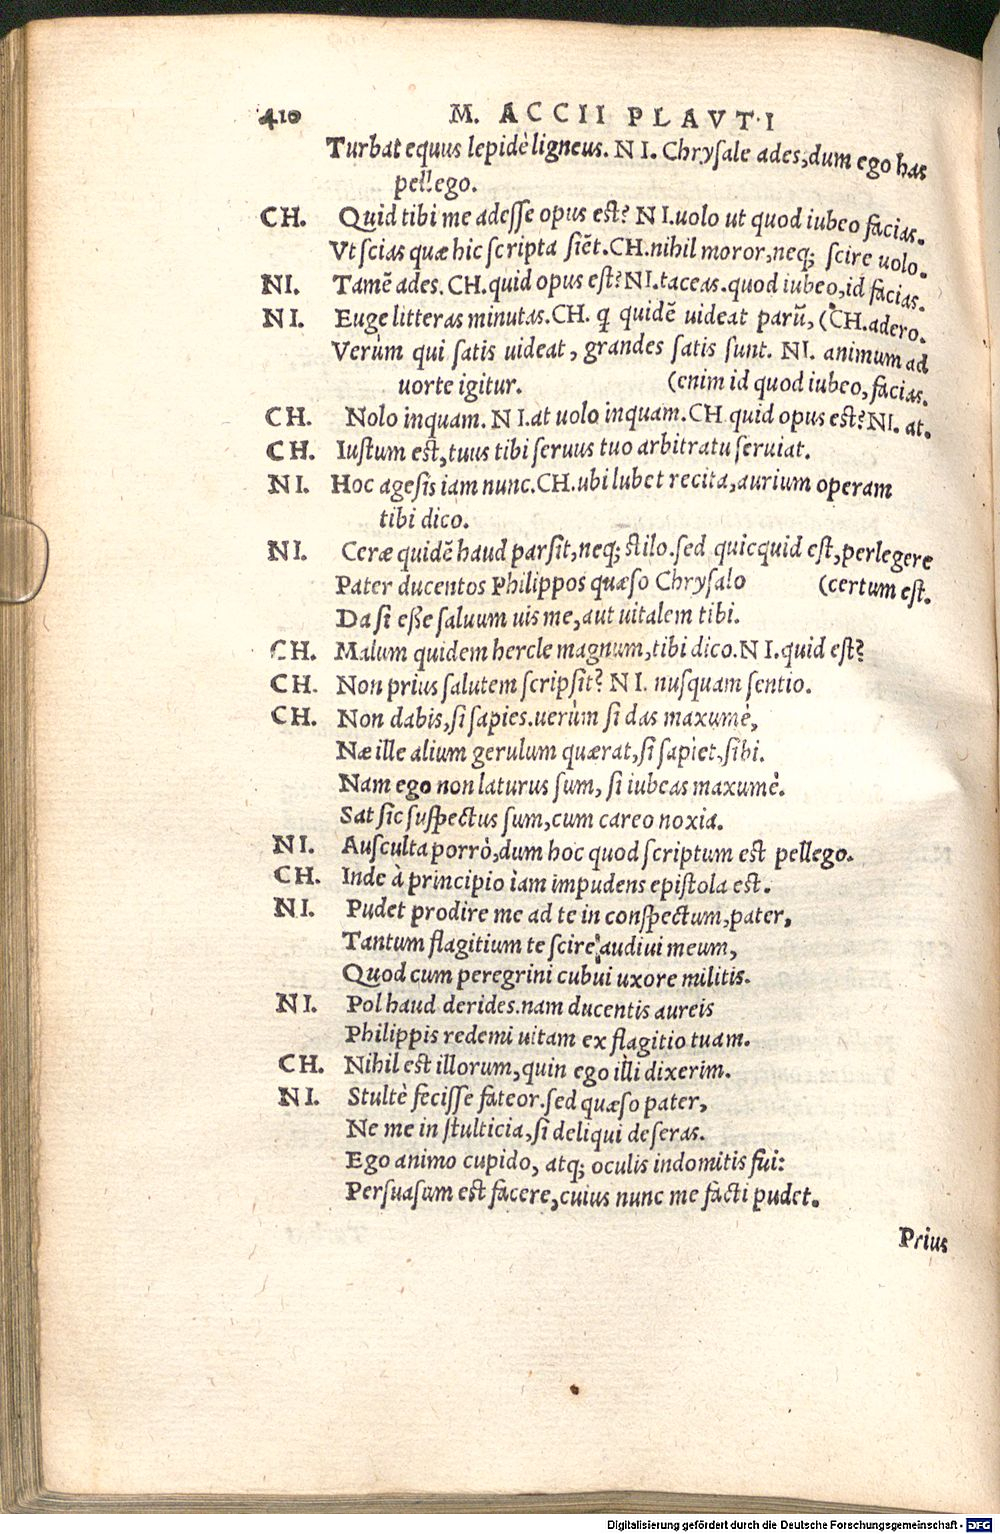 410 M. ACCII PLAVTI
Turbat equus lepidè ligneus. NI. Chrysale ades, dum ego has
pellego.
CH. Quid tibi me adesse opus est? NI. uolo ut quod iubeo facias.
Vt scias quæ hic scripta siẽt. CH. nihil moror, neq; scire uolo.
NI. Tamẽ ades. CH. quid opus est? NI. taceas. quod iubeo, id facias.
NI. Euge litteras minutas. CH. q quidẽ uideat parũ, (CH. adero.
Verùm qui satis uideat, grandes satis sunt. NI. animum ad
uorte igitur. (enim id quod iubeo, facias.
CH. Nolo inquam. NI. at uolo inquam. CH quid opus est? NI. at.
CH. Iustum est, tuus tibi seruus tuo arbitratu seruiat.
NI. Hoc agesis iam nunc. CH. ubi lubet recita, aurium operam
tibi dico.
NI. Ceræ quidẽ haud parsit, neq; stilo. sed quicquid est, perlegere
Pater ducentos Philippos quæso Chrysalo (certum est.
Da si esse saluum uis me, aut uitalem tibi.
CH. Malum quidem hercle magnum, tibi dico. NI. quid est?
CH. Non prius salutem scripsit? NI. nusquam sentio.
CH. Non dabis, si sapies. uerùm si das maxumè,
Næ ille alium gerulum quærat, si sapiet, sibi.
Nam ego non laturus sum, si iubeas maxumè.
Sat sic suspectus sum, cum careo noxia.
NI. Ausculta porrò, dum hoc quod scriptum est pellego.
CH. Inde à principio iam impudens epistola est.
NI. Pudet prodire me ad te in conspectum, pater,
Tantum flagitium te scire audiui meum,
Quod cum peregrini cubui uxore militis.
NI. Pol haud derides. nam ducentis aureis
Philippis redemi uitam ex flagitio tuam.
CH. Nihil est illorum, quin ego illi dixerim.
NI. Stultè fecisse fateor. sed quæso pater,
Ne me in stulticia, si deliqui deseras.
Ego animo cupido, atq; oculis indomitis fui:
Persuasum est facere, cuius nunc me facti pudet.
Prius
Digitalisierung gefördert durch die Deutsche Forschungsgemeinschaft - DFG